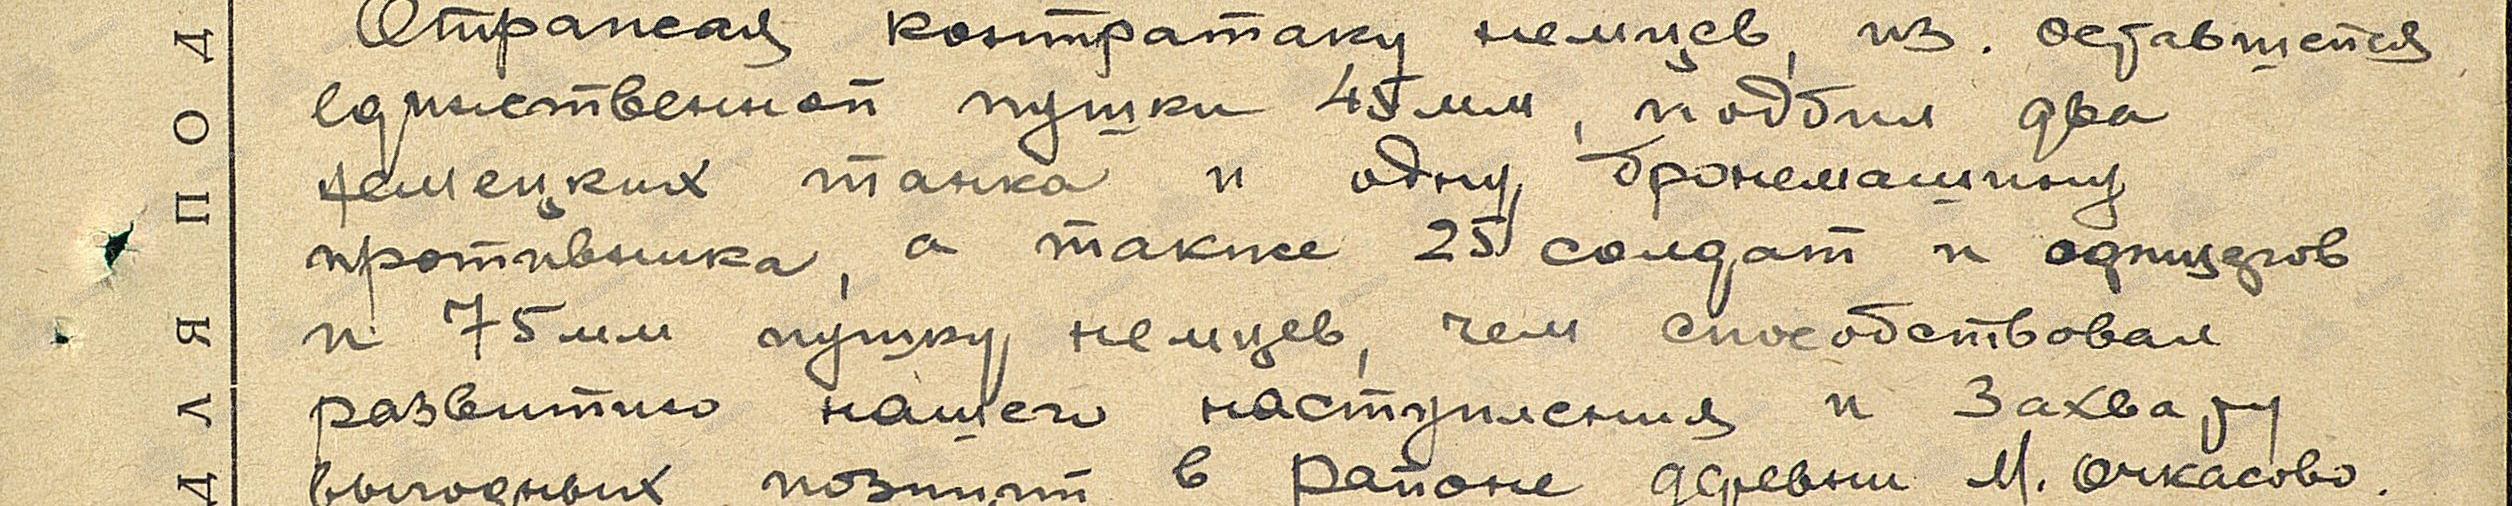 Отражая контратаку немцев, из. оставшейся
единственной пушки 45 мм, подбил два
немецких танка и одну бронемашину
противника, а также 25 солдат и офицеров
и 75 мм пушку немцев, чем способствовал
развитию нашего наступления и захвату
выгодных позиций в районе деревни М. Очкасово.
ДЛЯ ПОД